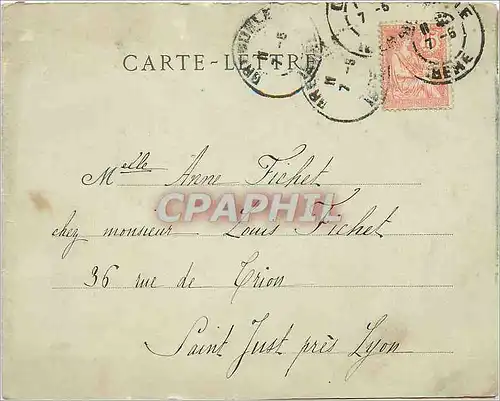 CARTE-LETTRE
Melle Anne Fichet
chez monsieur Louis Fichet
36 rue de Trion
Saint Just près Lyon
CPAPHIL